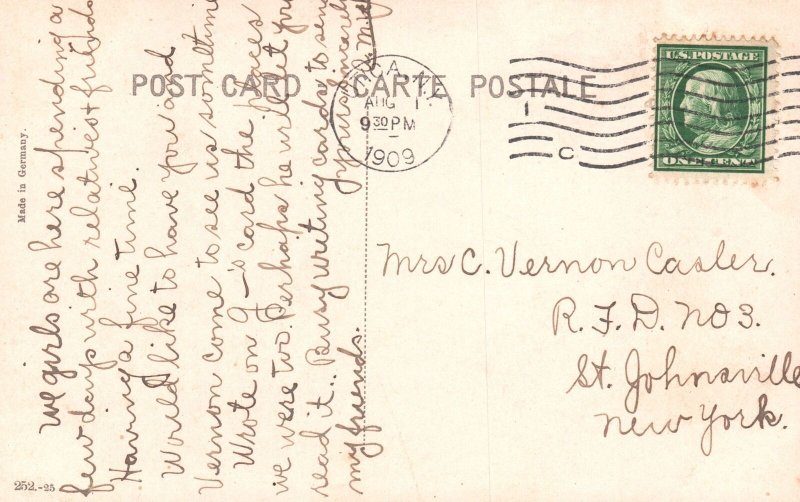 POST CARD CARTE POSTALE
AUG 1
9 30 PM
1909
1
C
U.S. POSTAGE
ONE CENT
Made in Germany.
We girls are here spending a
few days with relatives + friends
Having a fine time.
Would like to have you and
Vernon come to see us sometime
Wrote on card the places
we were to. Perhaps he will let you
read it. Busy writing cards to send
my friends.
Yours sincerely
M.
Mrs C. Vernon Casler.
R.F.D. No 3.
St. Johnsville
New York.
252.-25